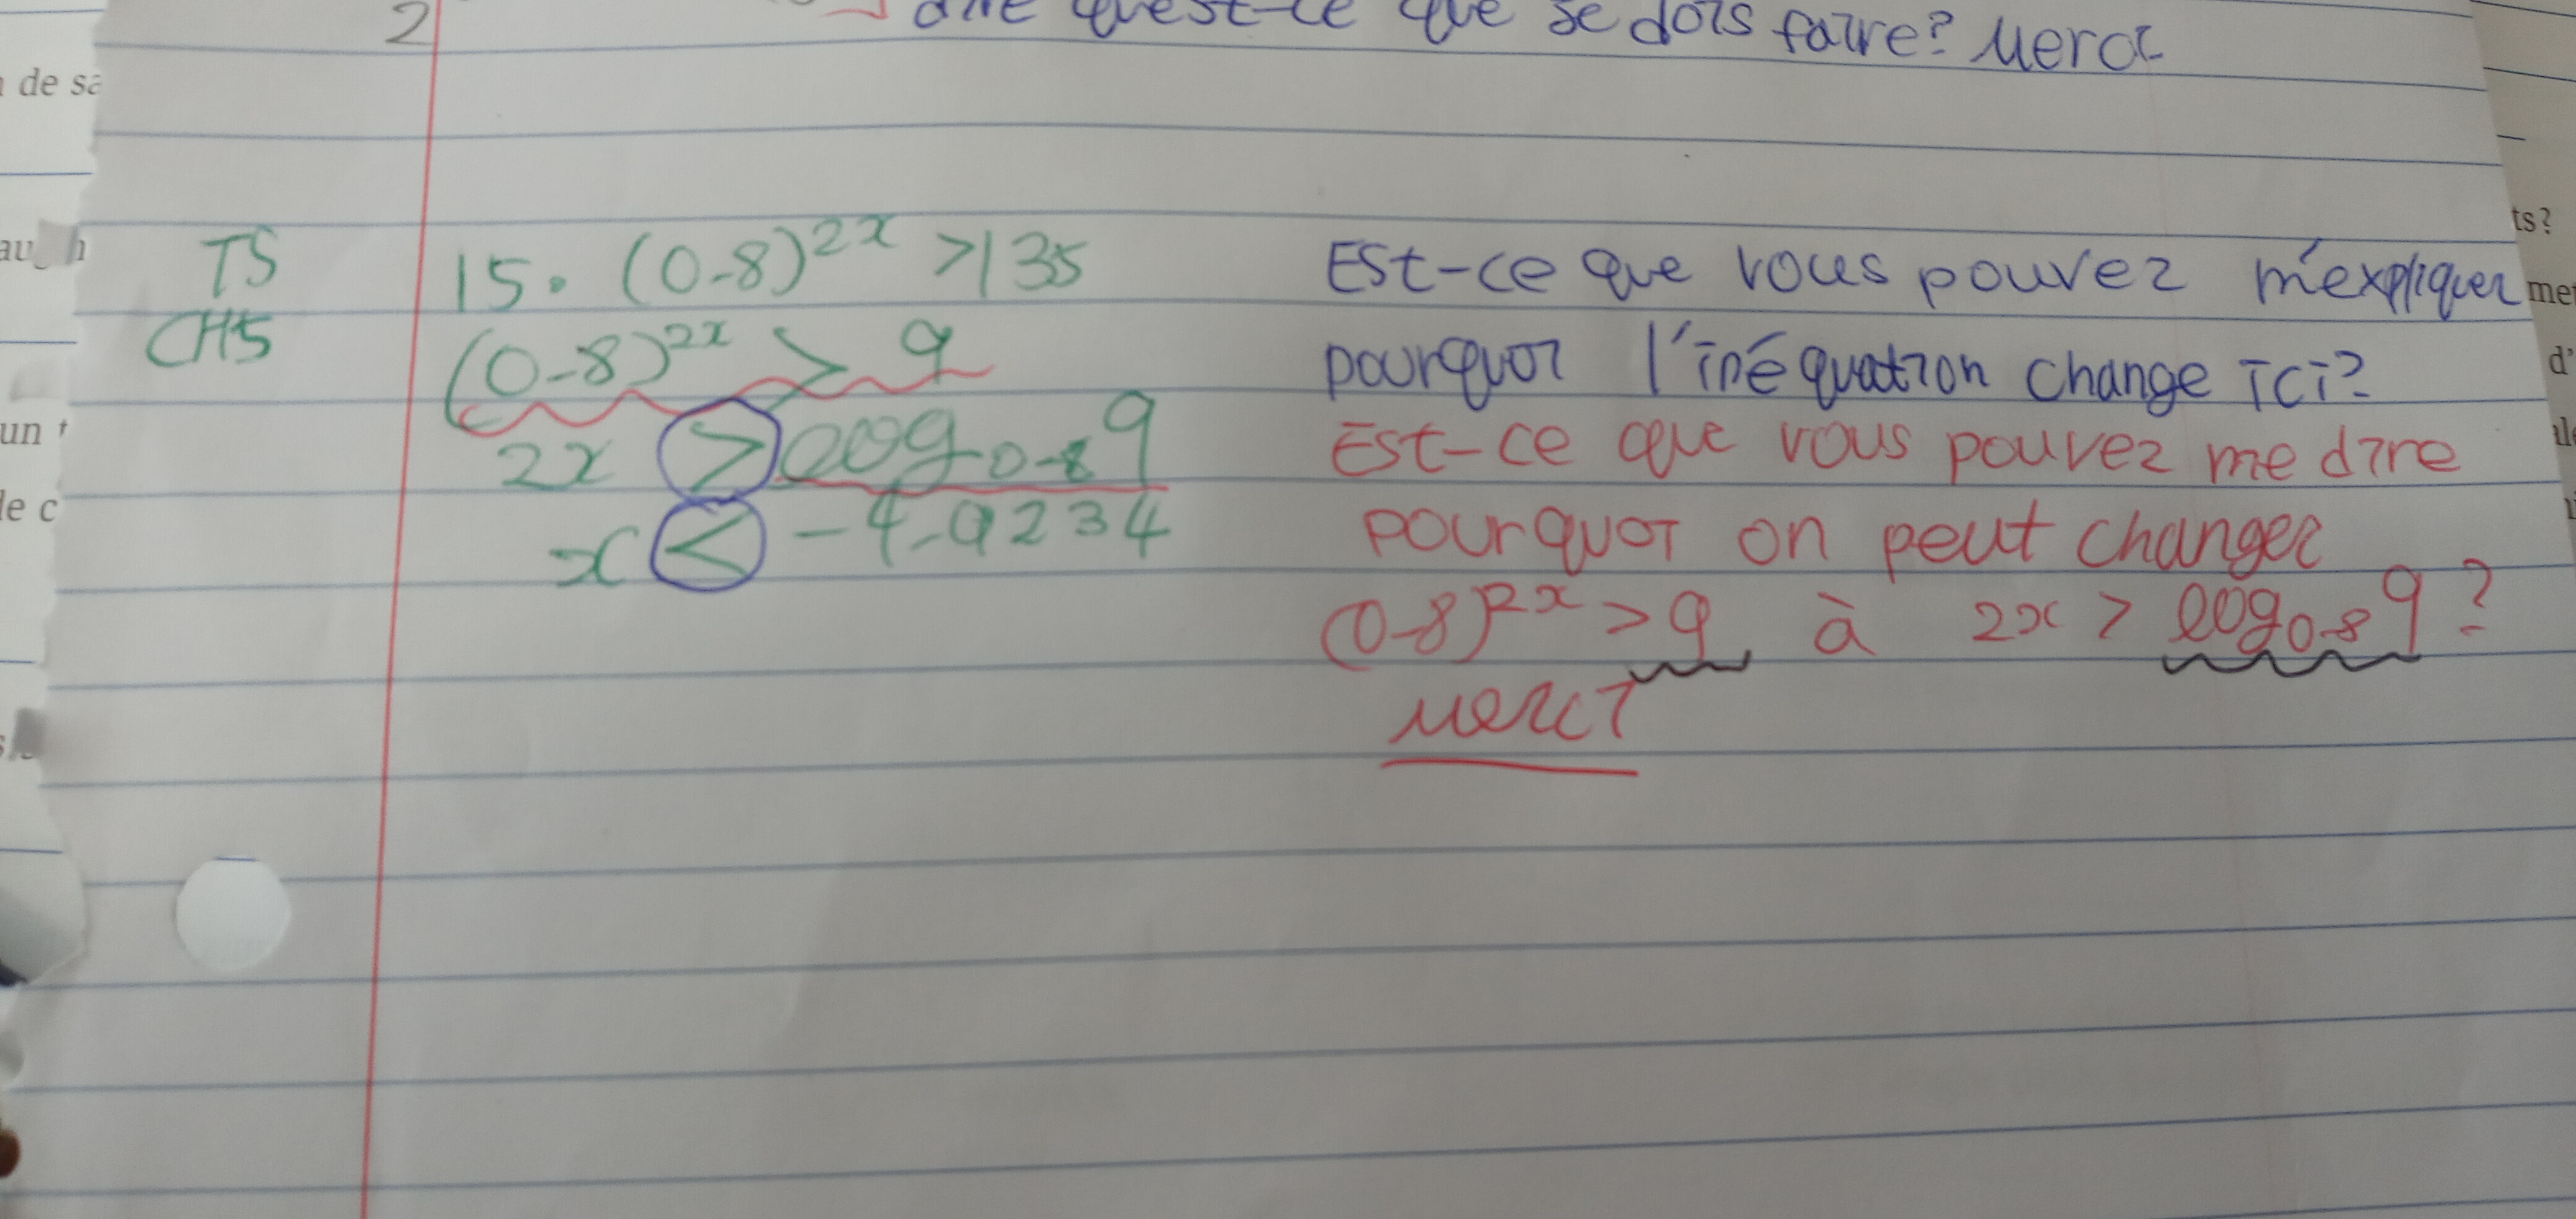 2
dire quest-ce que je dois faire? Merci
de sa
ts?
TS 15. (0.8)^2x >135 Est-ce que vous pouvez m'expliquer
CH5 (0.8)^2x > 9 pourquoi l'inéquation change ici?
un
2x > log0.8 9 Est-ce que vous pouvez me dire
le c
x < -4.9234 pourquoi on peut changer
(0.8)^2x > 9 à 2x > log0.8 9?
Merci